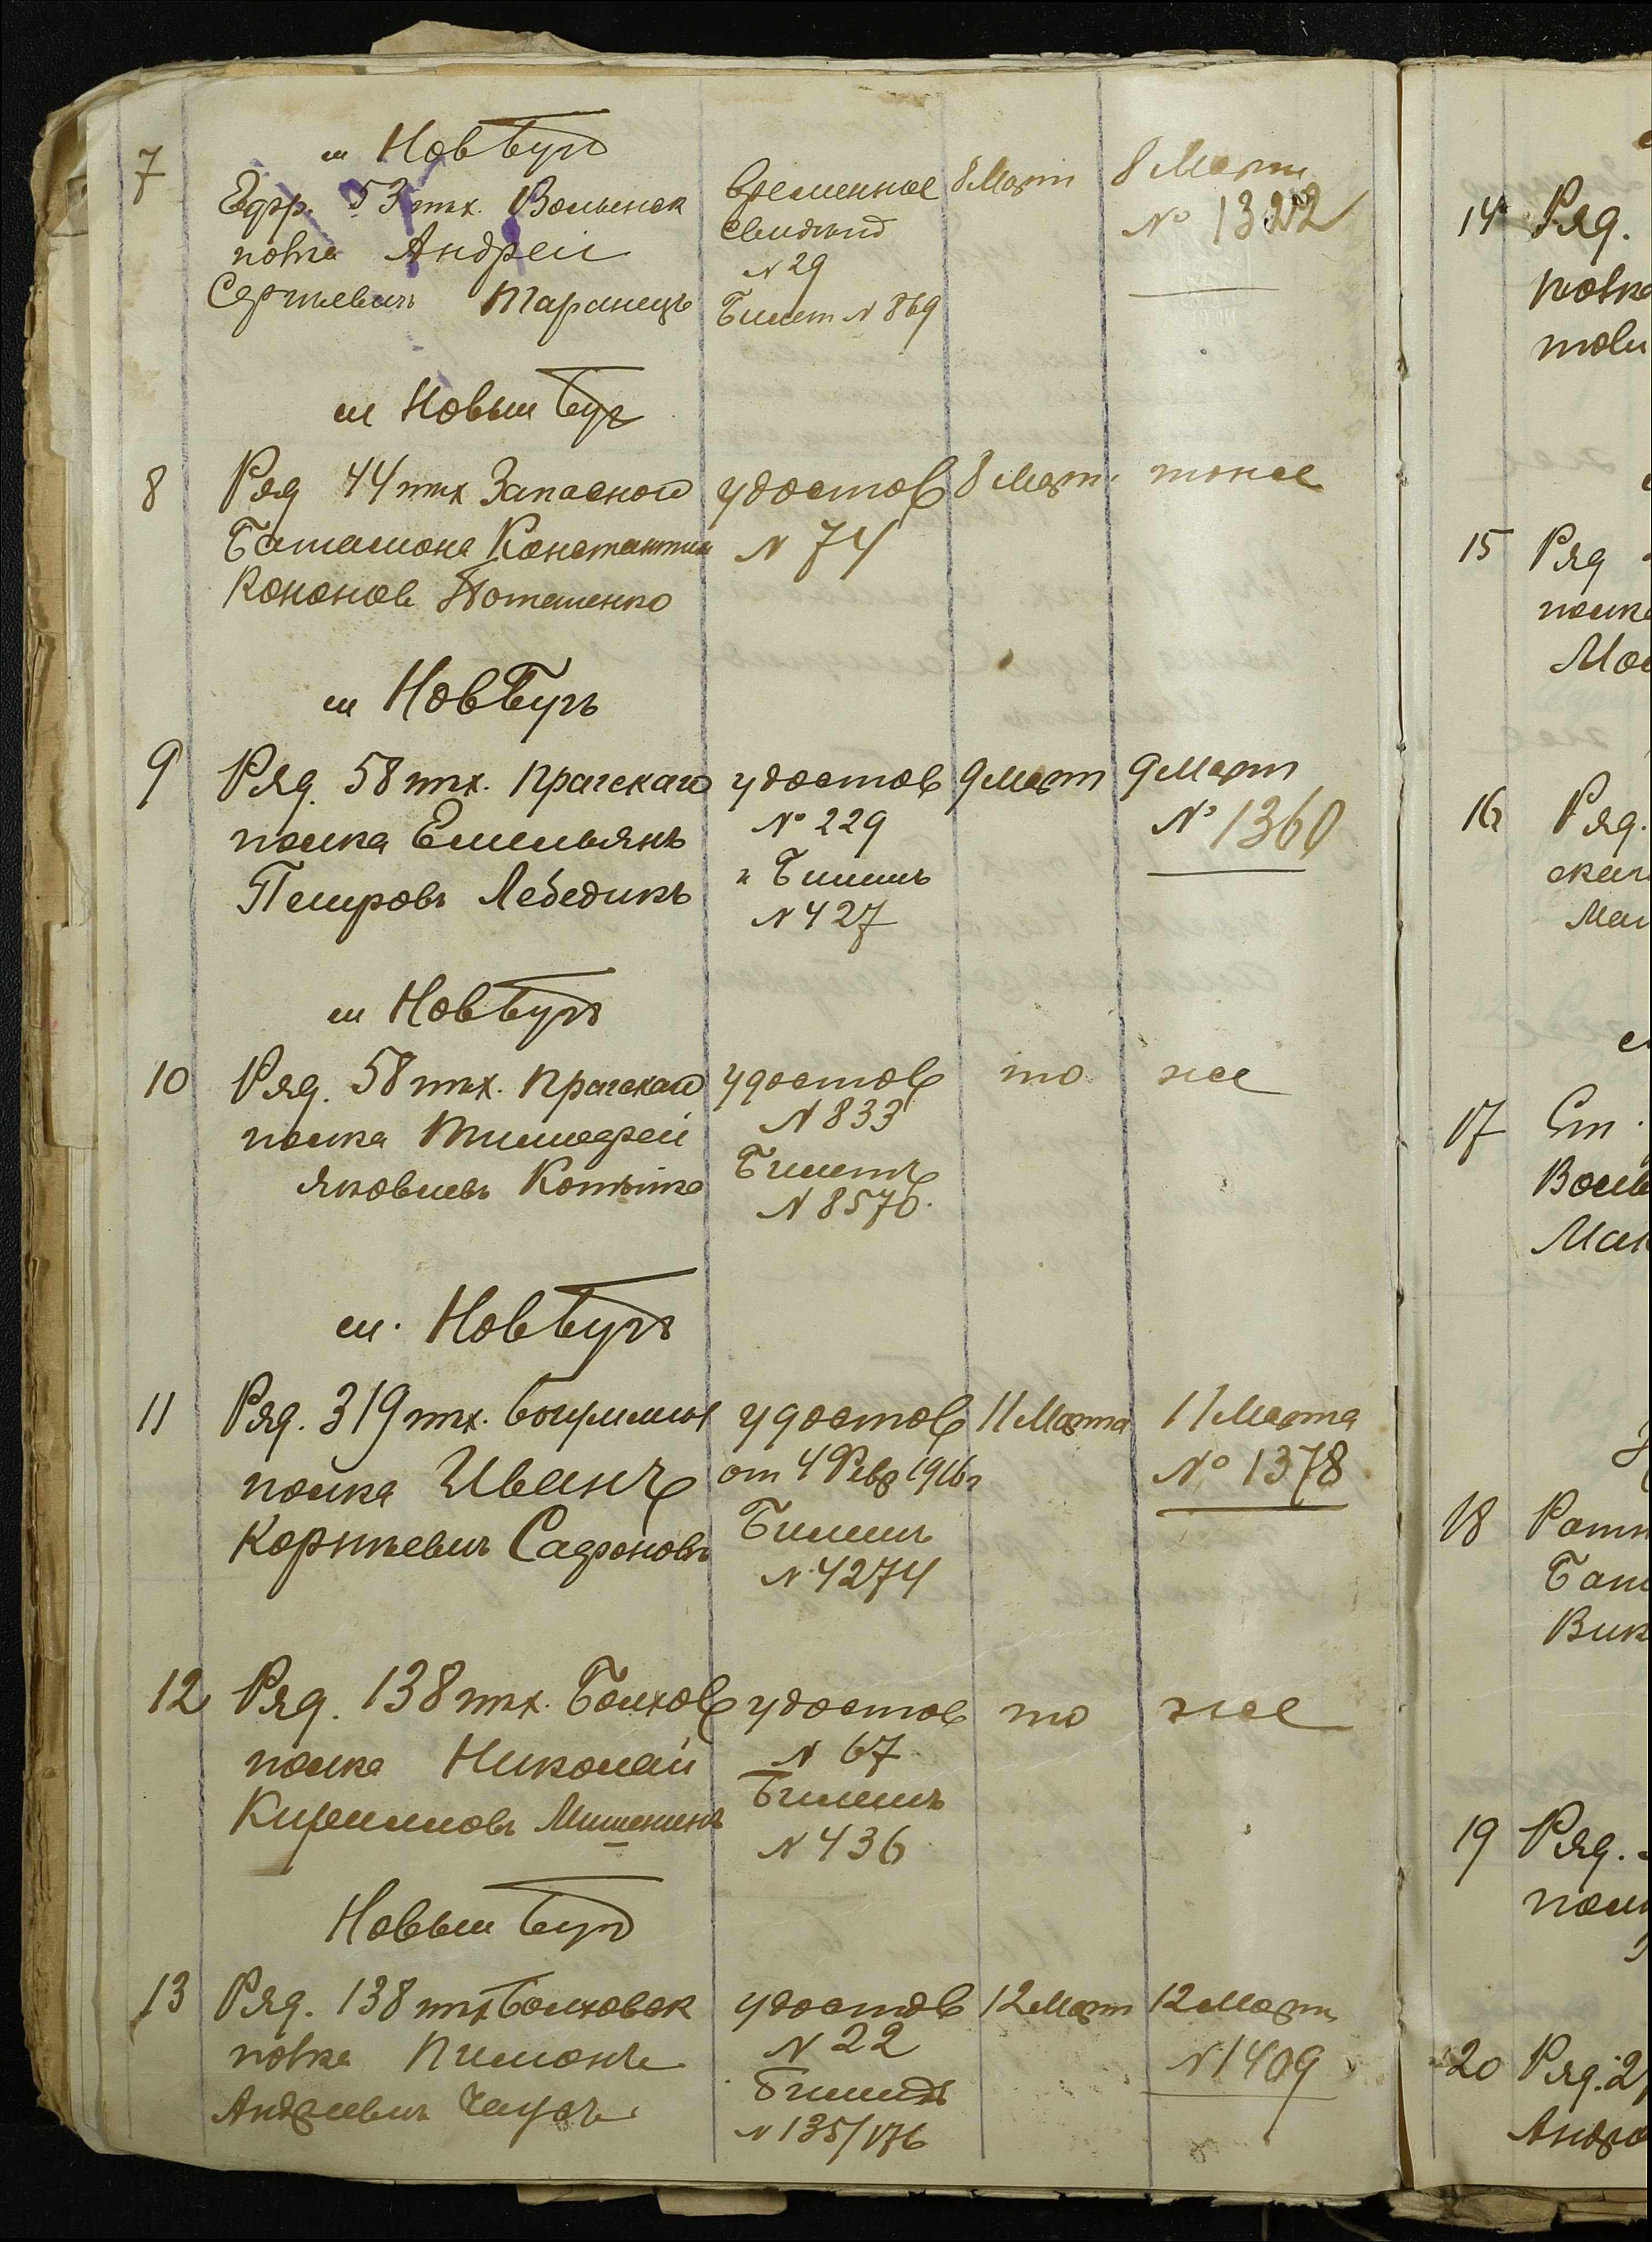 м НовБугъ
7
Ефр. 53 пех. Волынск
полка Андрей
Сергеевичъ Таранецъ
Временное
свидет
N 29
Билет N 869
8 Март
8 Март
№ 1322
м Новый Буг
8
Ряд 44 пех Запасного
Баталиона Константин
Кононов Поташенко
удостов
N 74
8 Март
тоже
м НовБугъ
9
Ряд. 58 пех. Прагскаго
полка Емельянъ
Петровъ Лебедикъ
удостов
№ 229
и Билетъ
N 427
9 Март
9 Март
№ 1360
м НовБугъ
10
Ряд. 58 пех. Прагскаго
полка Тимофей
Яковлевъ
удостов
N 833
Билетъ
N 8570.
то
же
м. НовБугъ
11
Ряд. 319 пех.
полка Иванъ
Корнеевич Сафоновъ
удостов
от 4 Февр 1916г
Билетъ
N 4274
11 Марта
11 Марта
№ 1378
12
Ряд. 138 пех. Болхов
полка Николай
Кирилловъ Мишенинъ
удостов
N 67
Билетъ
N 436
то
же
Новый Буг
13
Ряд. 138 пех Болховск
полка Пимонъ
Андреевичъ
удостов
N 22
Билетъ
N 135/176
12 Март
12 Март
N 1409
14
Ряд.
полка
15
Ряд
полка
16
Ряд.
17
Ст.
18
Ратн
Бат
Вик
19
Ряд.
20
Ряд. 2
Андре